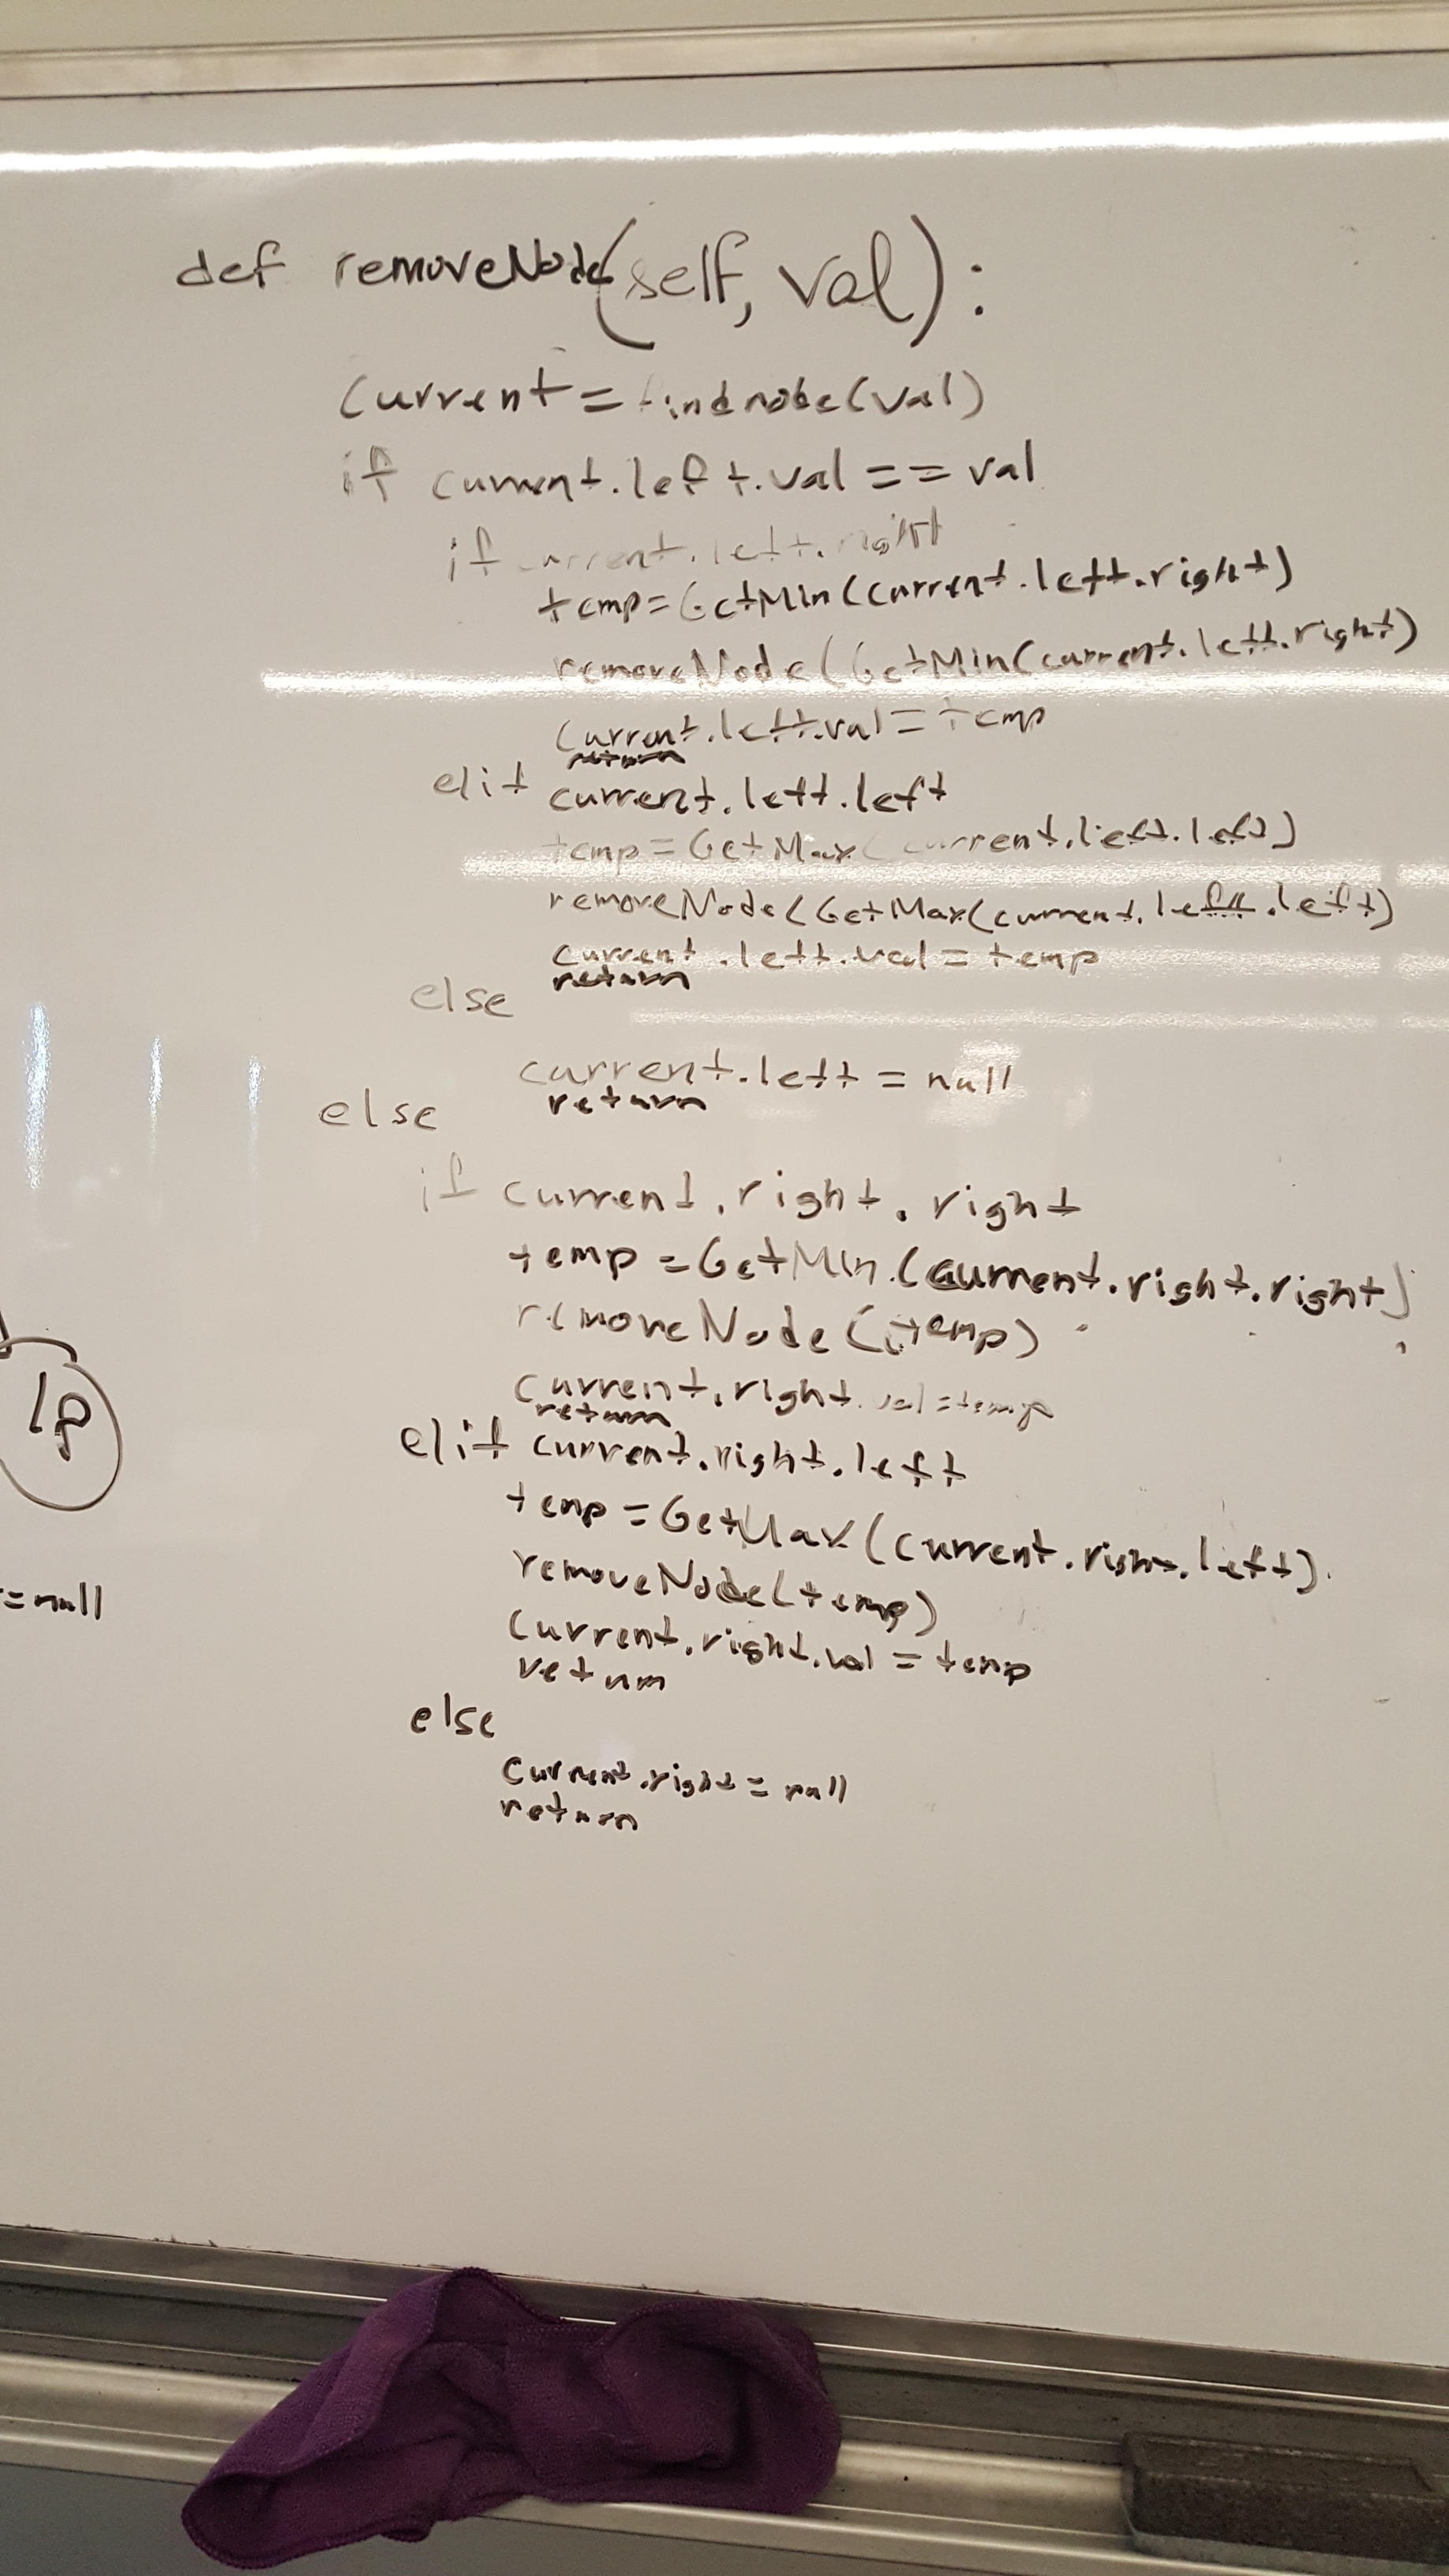 def removeNode(self, val):
current = findnode(val)
if current.left.val == val
if current.left.right
temp = GetMin(current.left.right)
removeNode(GetMin(current.left.right)
current.left.val = temp
return
elif current.left.left
temp = GetMax(current.left.left)
removeNode(GetMax(current.left.left)
current.left.val = temp
return
else
current.left = null
return
else
if current.right.right
temp = GetMin(current.right.right)
removeNode(temp)
current.right.val = temp
return
elif current.right.left
temp = GetMax(current.right.left)
removeNode(temp)
current.right.val = temp
return
else
current.right = null
return
= null